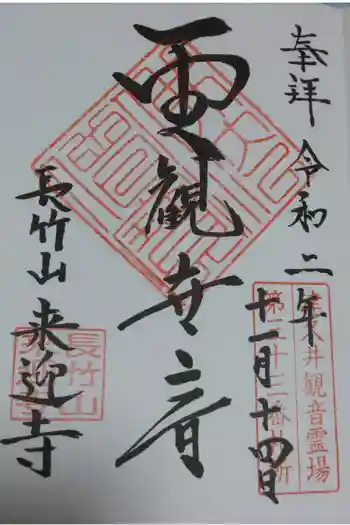 奉拝 令和二年
十一月十四日
津久井観音霊場
第二十二番札所
聖観世音
長竹山
来迎寺
長竹山